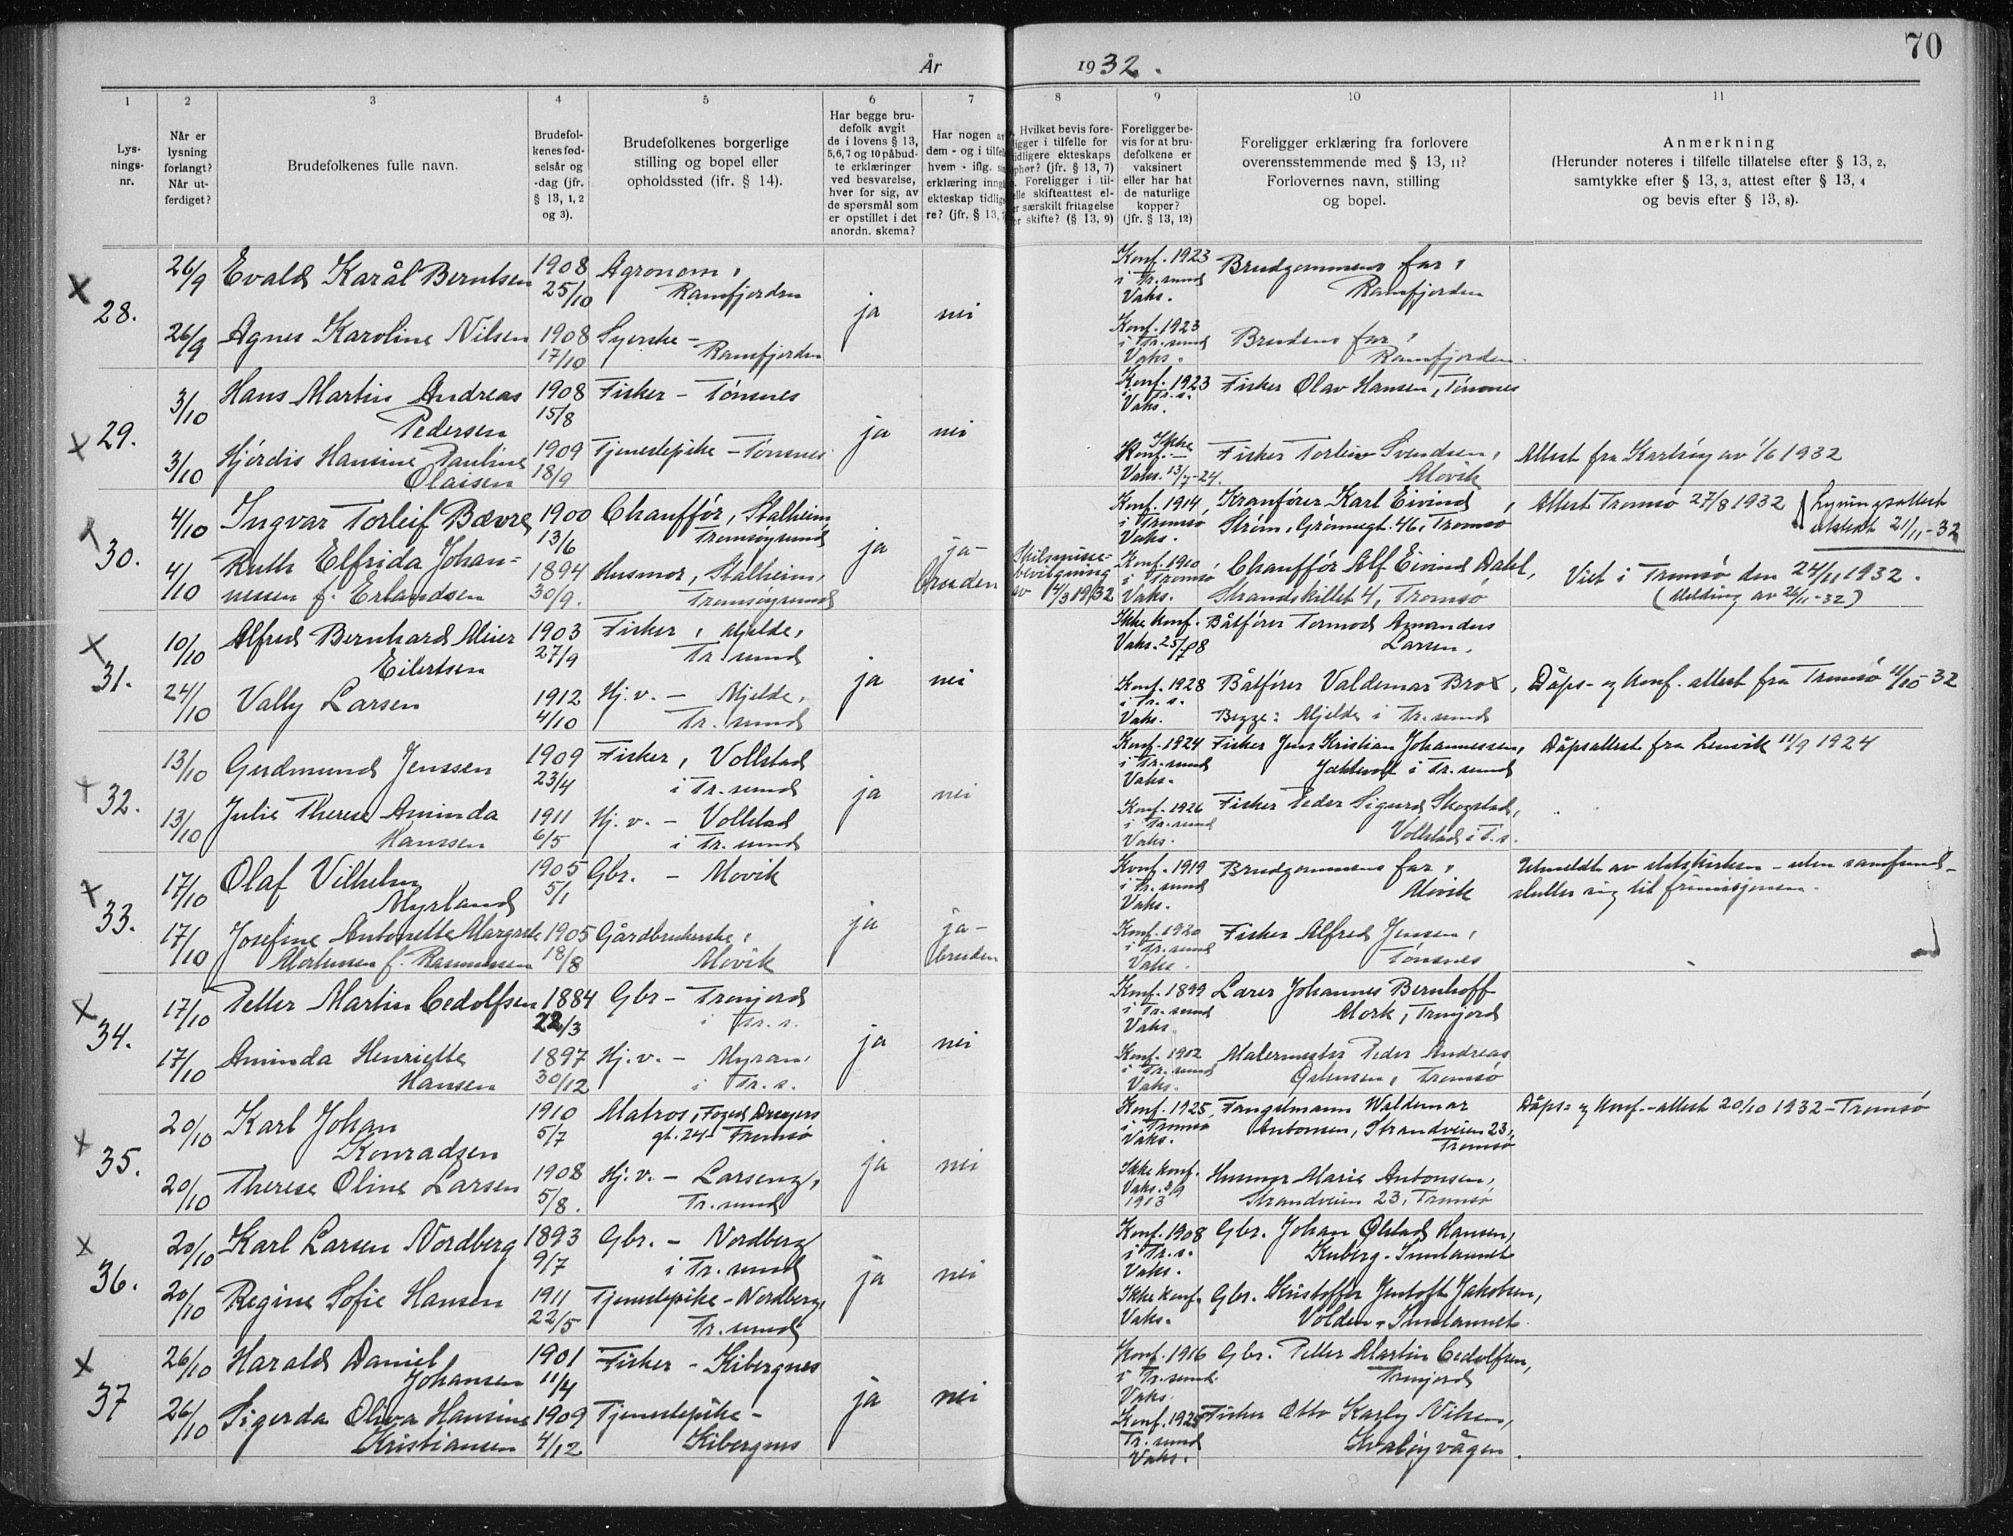 70
År 1932.
1 2 3 4 5 6 7 8 9 10 11
Lys-
nings-
nr.
Når er
lysning
forlangt?
Når ut-
ferdiget?
Brudefolkenes fulle navn.
Brudefol-
kenes fød-
selsår og
-dag (jfr.
§ 13, 1, 2
og 3).
Brudefolkenes borgerlige
stilling og bopel eller
opholdssted (ifr. § 14).
Har begge bru-
defolk avgit
de i lovens § 13,
5, 6, 7 og 10 påbud-
te erklæringer
ved besvarelse,
hver for sig, av
de spørsmål som
er opstillet i det
anordn. skema?
Har nogen a
dem - og i tilfel
hvem - iflg. si
erklæring inng
ekteskap tidlig
re? (jfr. § 13,
Hvilket bevis fore-
ligger i tilfelle for
tidligere ekteskaps
pphør? (jfr. § 13, 7)
Foreligger i til-
elle skifteattest el-
er særskilt fritagelse
or skifte? (§ 13, 9)
Foreligger be-
vis for at bru-
defolkene er
vaksinert
eller har hat
de naturlige
kopper?
(jfr. § 13, 12)
Foreligger erklæring fra forlovere
overensstemmende med § 13, 11?
Forlovernes navn, stilling
og bopel.
Anmerkning
(Herunder noteres i tilfelle tillatelse efter § 13, 2,
samtykke efter § 13, 3, attest efter § 13, 4
og bevis efter § 13, 8).
X 28. 26/9 Evald Karål Berntsen 1908 Agronom, Konf. 1923 Brudgommens far,
25/10 Ramfjorden ja nei i Tr.sund Vaks. Ramfjorden
26/9 Agnes Karoline Nilsen 1908 Syerske - Konf. 1923 Brudens far,
17/10 Ramfjorden i Tr.sund Vaks. Ramfjorden.
X 29. 3/10 Hans Martin Andreas 1908 Fisker - Tønsnes Konf. 1923 Fisker Olav Hansen, Tønsnes
Pedersen 15/8 ja nei i Tr.s. Vaks.
3/10 Hjørdis Hansine Pauline 1909 Tjenestepike - Tønsnes Ikke Konf. Fisker Torleiv Svendsen, Attest fra Karlsøy av 1/6 1932
Olaisen 18/9 Vaks. 13/7-24. Movik
X 30. 4/10 Ingvar Torleif Bævre 1900 Chauffør, Stalheim, Konf. 1914, Kranfører Karl Eivind Attest Tromsø 27/8 1932 } Lysningsattest
13/6 Tromsøysund ja ja - i Tromsø Vaks. Strøm, Grønnegt. 46, Tromsø utstedt 21/11-32
4/10 Ruth Elfrida Johan- 1894 Husmor, Stalheim, bruden Skilsmisse- Konf. 1910, Chauffør Alf Eivind Dahl, Viet i Tromsø den 24/11 1932.
nessen f. Erlandsen 30/9. Tromsøysund bevilgning av 14/3 1932 i Tromsø Vaks. Strandskillet 4, Tromsø (Melding av 26/11-32)
X 31. 10/10 Alfred Bernhard Meier 1903 Fisker, Mjelde, Ikke konf. Båtfører Tormod Amandus
Eilertsen 27/9 Tr.sund ja nei Vaks. 25/7 08 Larsen.
24/10 Vally Larsen 1912 Hj.v. - Mjelde, Konf. 1928 Båtfører Valdemar Brox, Dåps- og konf. attest fra Tromsø 11/10-32
4/10 Tr.sund i Tr.s. Vaks. Begge: Mjelde i Tr.sund
X 32. 13/10 Gudmund Jenssen 1909 Fisker, Vollstad Konf. 1924 Fisker Jens Kristian Johannessen, Dåpsattest fra Lenvik 11/9 1924
23/4 i Tr.sund ja nei i Tr.sund Vaks. i Tr.sund
13/10 Julie Therese Aminda 1911 Hj.v. - Vollstad Konf. 1926 Fisker Peder Sigurd Skogstad,
Hanssen 6/5 i Tr.sund i Tr.sund Vaks. Vollstad i T.s.
X 33. 17/10 Olaf Vilhelm 1905 Gbr. - Movik Konf. 1919 Brudgommens far, Utmeldt av statskirken - uten samfund -
Myrland 5/1 ja ja - i Tr.sund Vaks. Movik slutter sig til frimisjonen.
17/10 Josefine Antonette Margrete 1905 Gårdbrukerske, bruden Konf. 1920 Fisker Alfred Jensen,
Mortensen f. Rasmussen 18/8 Movik i Tr.sund Vaks. Tønsnes
X 34. 17/10 Petter Martin Cedolfsen 1884 Gbr - Trenjord Konf. 1899 Lærer Johannes Bernhoff
22/3 i Tr.s. ja nei i Tr.sund Vaks. Mork, Trenjord
17/10 Aminda Henriette 1897 Hj.v. - Myran, Konf. 1902 Malermester Peder Andreas
Hansen 30/12 i Tr.s. i Tr.sund Vaks. Tromsø
X 35. 20/10 Karl Johan 1910 Matros, Foged Dreyers Konf. 1925, Fangstmann Waldemar Dåps- og konf.-attest 20/10 1932 - Tromsø
Konradsen 5/7 gt. 24 Tromsø ja nei i Tromsø Vaks. Antonsen, Strandveien 23, Tromsø
20/10 Therese Oline Larsen 1908 Hj.v. - Larseng, Ikke konf. Husmor Marie Antonsen,
5/8. Tr.sund Vaks. 1913 Strandveien 23, Tromsø
X 36. 20/10 Karl Larsen Nordberg 1893 Gbr. - Nordberg Konf. 1908 Gbr. Johan Ølstad Hansen,
9/7 i Tr.sund ja nei i Tr.s. Vaks.
20/10 Regine Sofie Hansen 1911 Tjenestepike - Nordberg, Ikke konf. Gbr. Kristoffer Jentoft Jakobsen,
22/5 Tr.sund Vaks. Volden
X 37 26/10 Harald Daniel 1901 Fisker - Kibergnes Konf. 1916 Gbr. Petter Martin Cedolfsen,
Johansen 11/4 ja nei i Tr.sund Vaks. Trenjord
26/10 Sigerda Oliva Hansine 1909 Tjenestepike - Konf. 1925 Fisker Otto Karly Nilsen,
Kristiansen 4/12 Kibergnes Tr.sund Vaks. Kvaløyvågen.